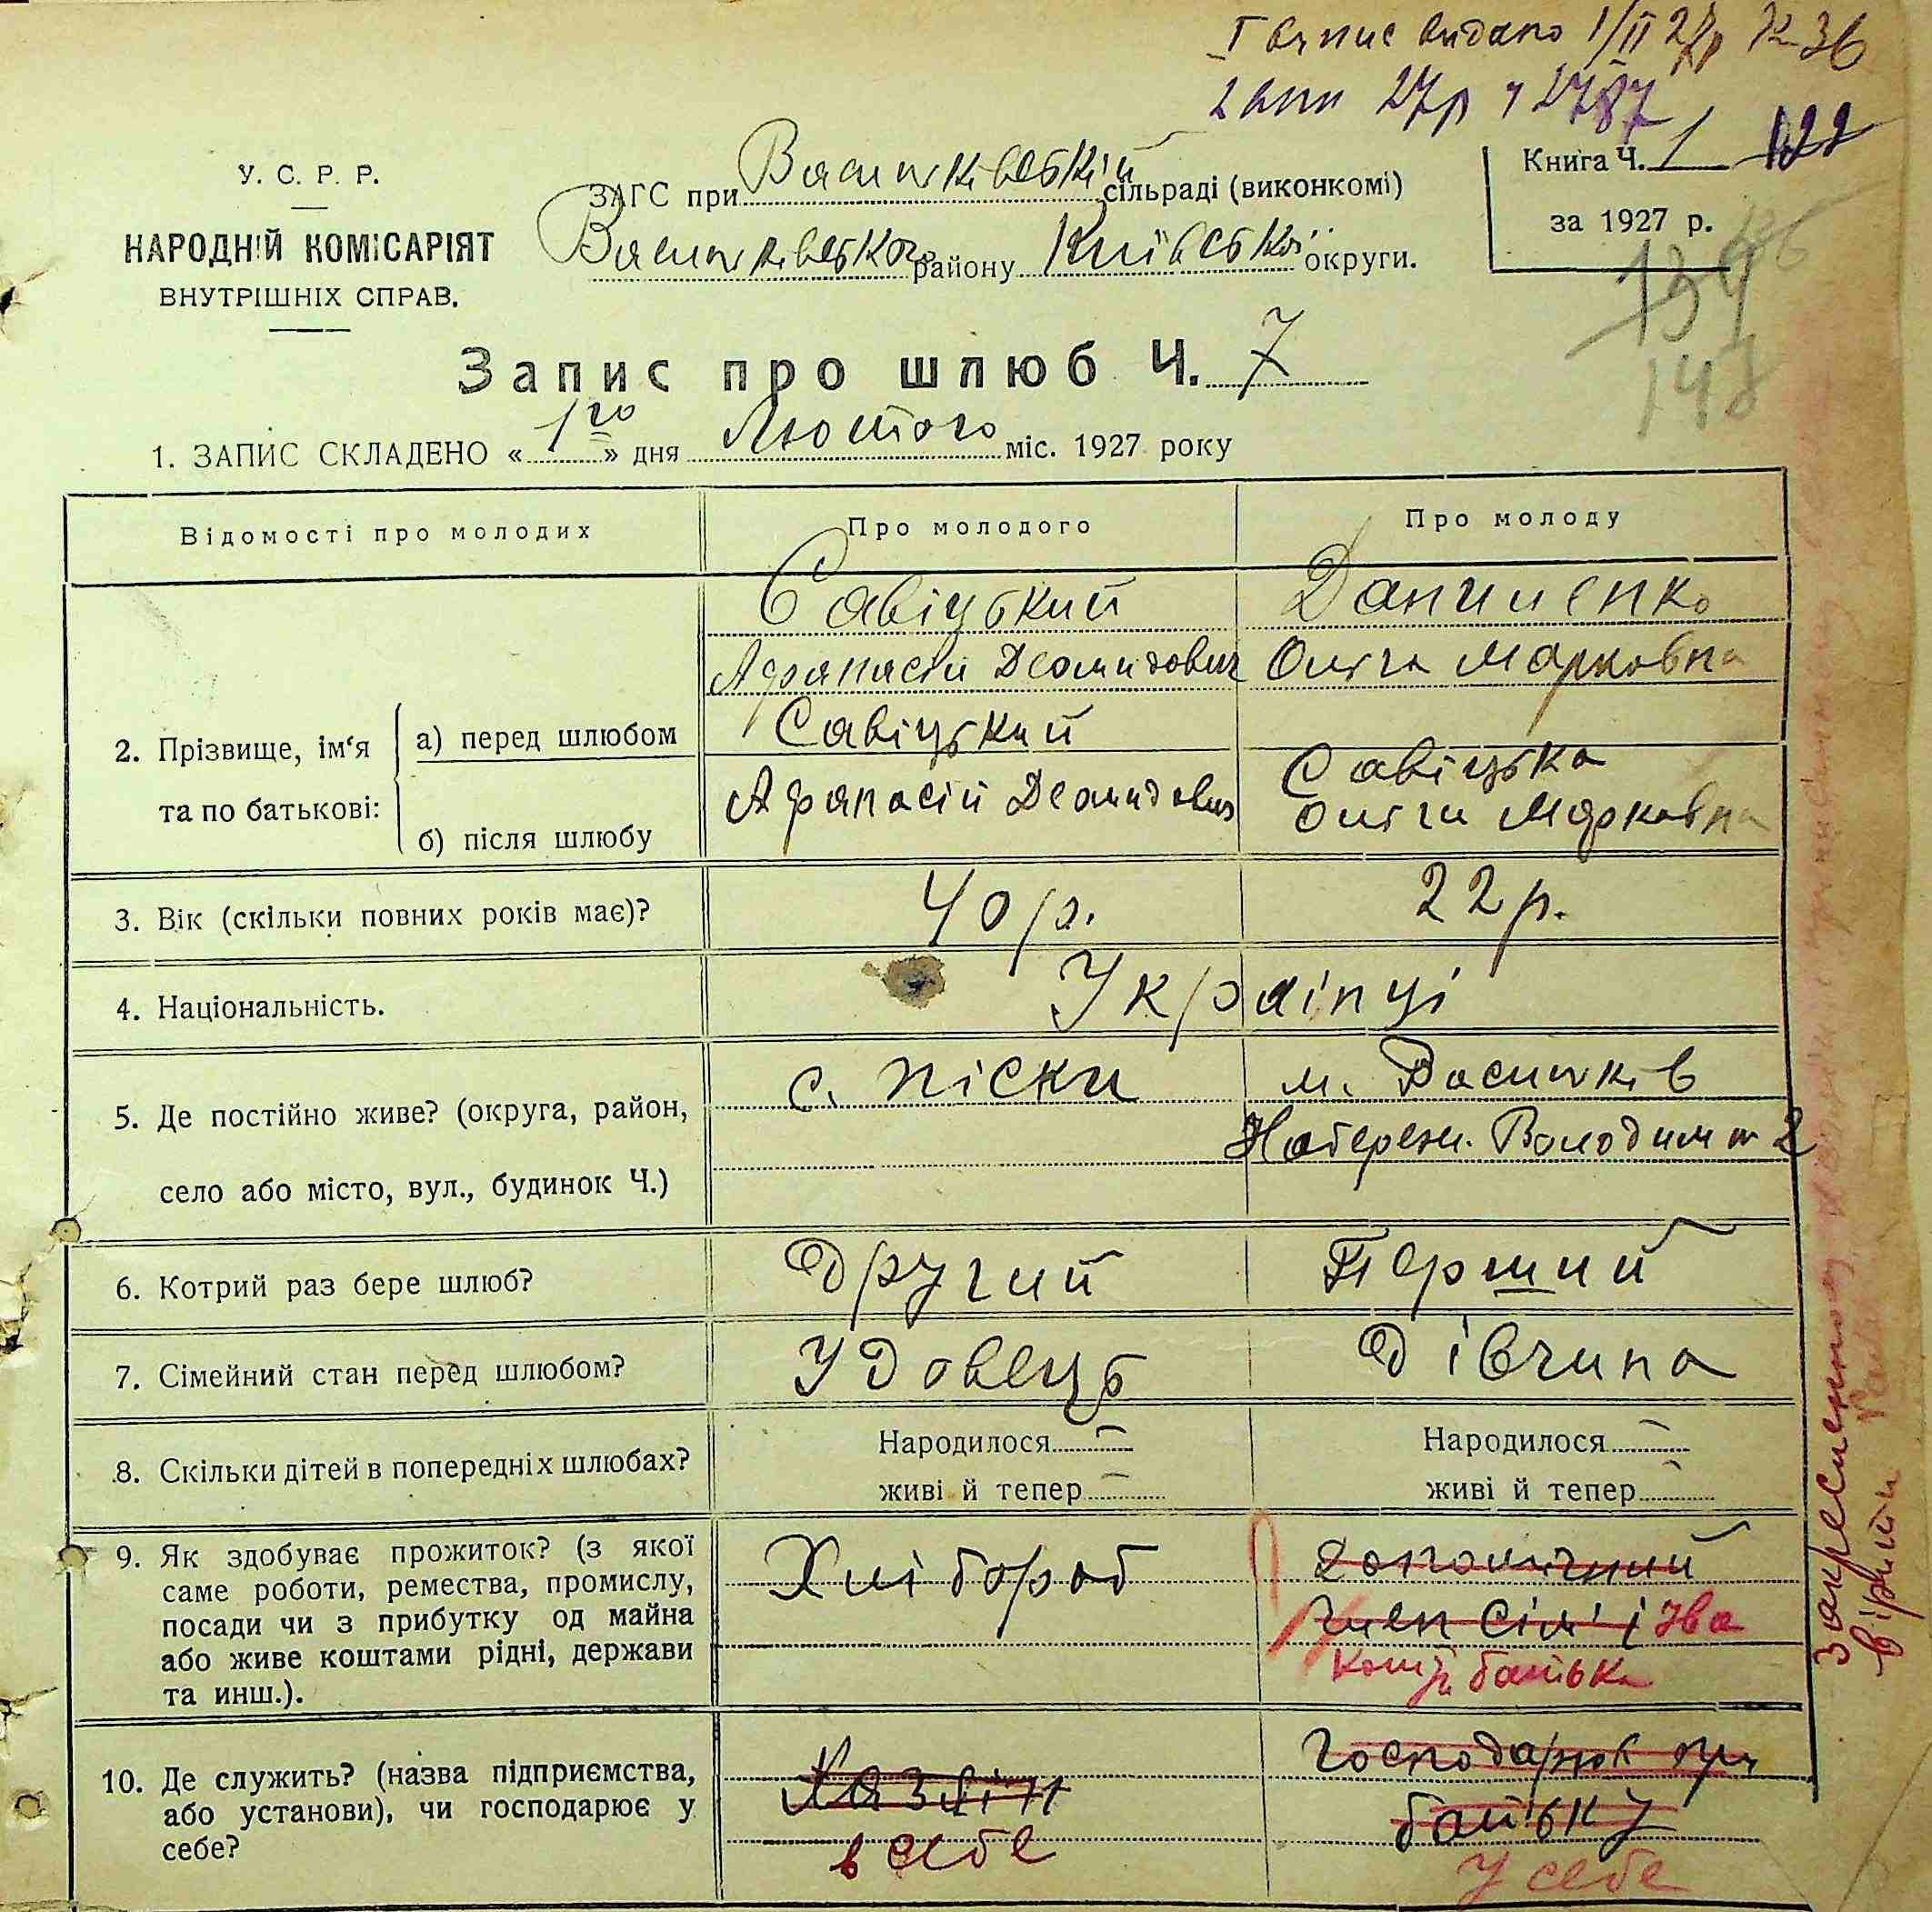 I випис видано 1/II 27р К-36
2 вип 27р ч 2787
У. С. Р. Р.
НАРОДНІЙ КОМІСАРІЯТ
ВНУТРІШНІХ СПРАВ.
ЗАГС при Васильківській сільраді (виконкомі)
Васильківського району Київської округи.
Книга Ч. 1 122
за 1927 р.
147
Запис про шлюб Ч. 7
1. ЗАПИС СКЛАДЕНО « 1го » дня Лютого міс. 1927 року
Відомості про молодих
Про молодого
Про молоду
2. Прізвище, ім‘я та по батькові:
а) перед шлюбом
Савіцький
Афанасій Деомидович
Даниленко
Ольга Марковна
б) після шлюбу
Савіцький
Афанасій Деомидович
Савіцька
Ольга Марковна
3. Вік (скільки повних років має)?
40 р.
22 р.
4. Національність.
Українці
5. Де постійно живе? (округа, район,
село або місто, вул., будинок Ч.)
с. Піски
м. Васильків
Набережн. Володим № 2
6. Котрий раз бере шлюб?
Другий
Перший
7. Сімейний стан перед шлюбом?
Удовець
Дівчина
8. Скільки дітей в попередніх шлюбах?
Народилося —
живі й тепер —
Народилося —
живі й тепер —
9. Як здобуває прожиток? (з якої
саме роботи, ремества, промислу,
посади чи з прибутку од майна
або живе коштами рідні, держави
та инш.).
Хлібороб
допоміжний
член сім'ї
батька
10. Де служить? (назва підприємства,
або установи), чи господарює у
себе?
Хазяїн
в себе
Господарює при
батьку
У себе
Закресленному
вірити